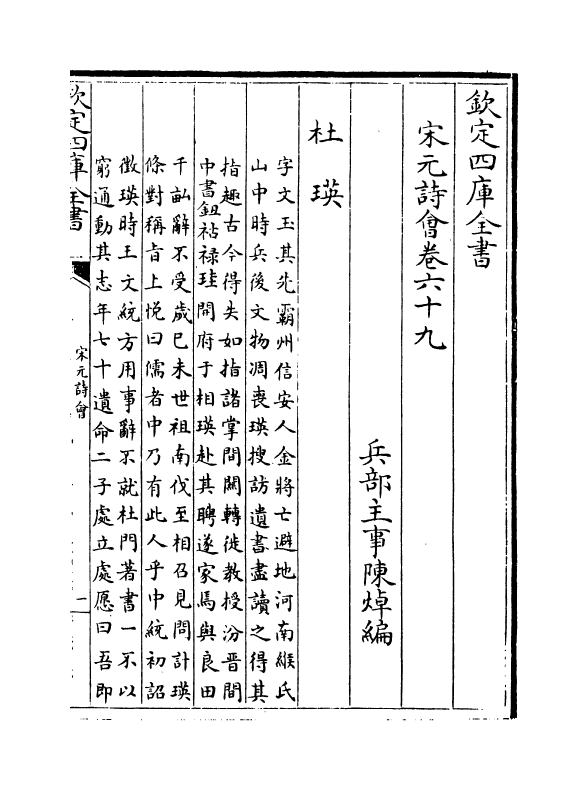 欽定四庫全書
宋元詩會卷六十九
兵部主事陳焯編
杜瑛
字文玉其先霸州信安人金將亡避地河南緱氏
山中時兵後文物凋喪瑛搜訪遺書盡讀之得其
指趣古今得失如指諸掌間關轉徙教授汾晉間
中書鈕祜祿珪開府于相瑛赴其聘遂家焉與良田
千畝辭不受歲已未世祖南伐至相召見問計瑛
條對稱旨上悅曰儒者中乃有此人乎中統初詔
徵瑛時王文統方用事辭不就杜門著書一不以
窮通動其志年七十遺命二子處立處愿曰吾即
欽定四庫全書
宋元詩會
一